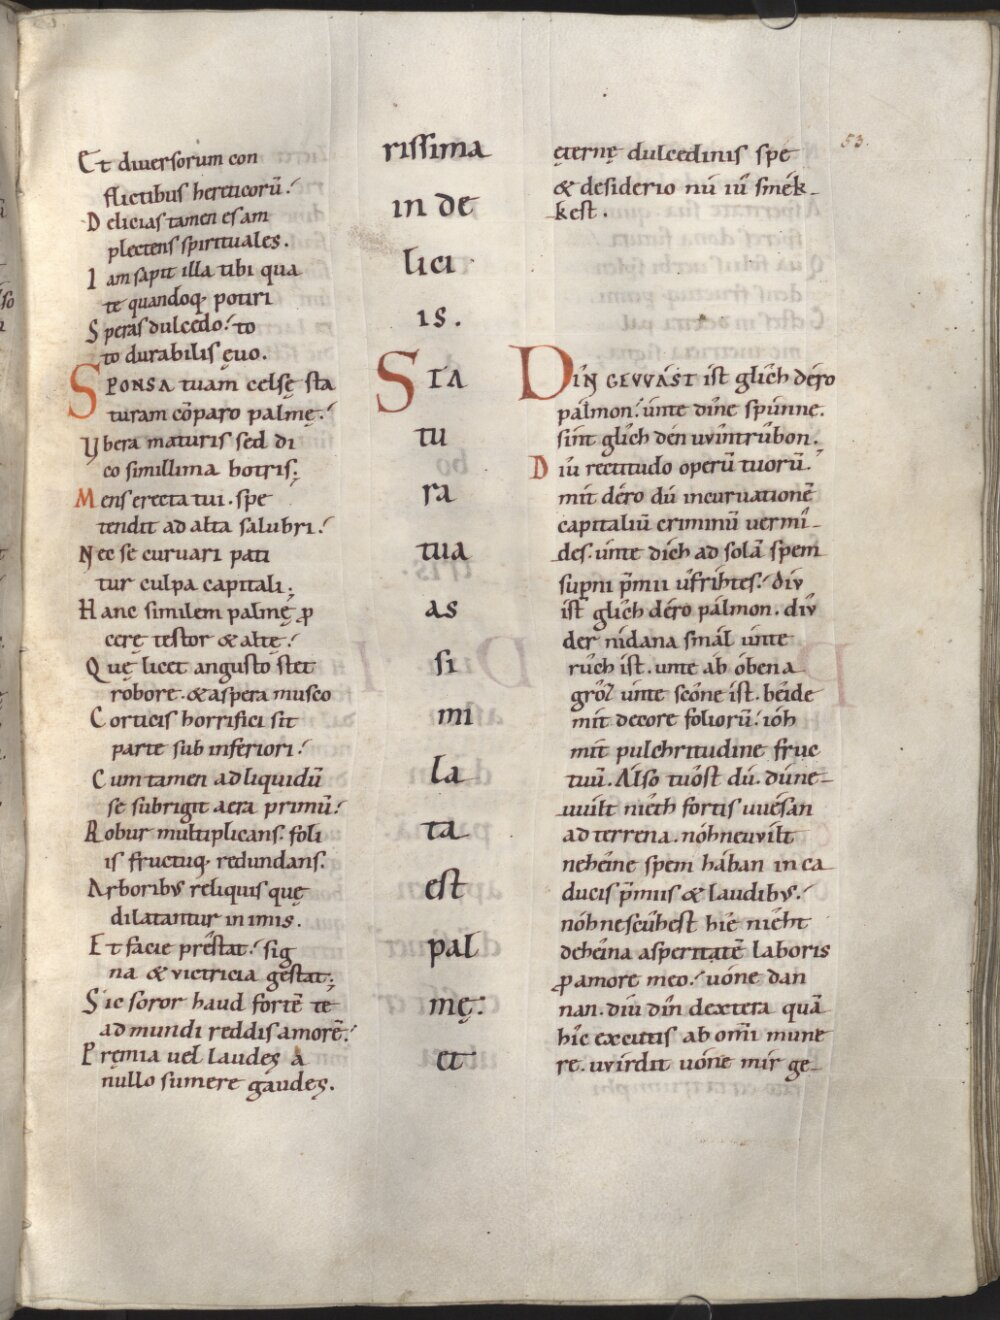 53.
Et diuersorum con
flictibus hereticorū.
Delicias tamen es am
plectens spirituales.
Iam sapit illa tibi qua
te quandoq; potiri
Speras dulcedo. to
to durabilis ęuo.
SPONSA tuam celsę sta
turam cōparo palmę.
Vbera maturis sed di
co simillima botris;
Mens erecta tui. spe
tendit ad alta salubri.
Nec se curuari pati
tur culpa capitali;
Hanc similem palmę p̱
cerę testor & altę.
Quę licet angusto stet
robore. & aspera musco
Corticis horrifici sit
parte sub inferiori.
Cum tamen ad liquidū
se subrigit aera primū.
Robur multiplicans. foli
is fructuq; redundans.
Arboribus reliquis quę
dilatantur in imis.
Et facie prēstat. sig
na & victricia gestat;
Sic soror haud fortē te
ad mundi reddis amorē.
Pręmia uel laudes a
nullo sumere gaudes.
rissima
in de
lici
is.
STA
tu
ra
tua
as
si
mi
la
ta
est
pal
mę:
et
ęternę dulcedinis spe
& desiderio nú iû smék-
kest.
DÎN GEVVÁST ist glîch déro
pálmon. únte díne spúnne.
sínt glîch dén uvîntrûbon.
Díu rectitudo operū tuorū.
mít déro dú incuruationē
capitaliū criminū uermî-
des. únte dích ad solā spem
sup̄ni p̄mii ûfríhtes. dív
íst glîch déro pálmon. dív
der nídana smál únte
rûch íst. unte ab óbena
grôz únte scône íst. béide
mít decore foliorū. ióh
mít pulchritudine fruc
tuū. Álso tûost dú. dú ne-
uuílt níeth fortis uuésan
ad terrena. nóh ne uvílt
nehéine spem hában in ca
ducis p̄miis & laudibus.
nóh ne scûhest híe níeht
dehéina asperitatē laboris
p̱ amore meo. uóne dan
nan. díu dîn dextera quā
híe excutis ab om̄i mune
re. uvírdit uóne mír ge-